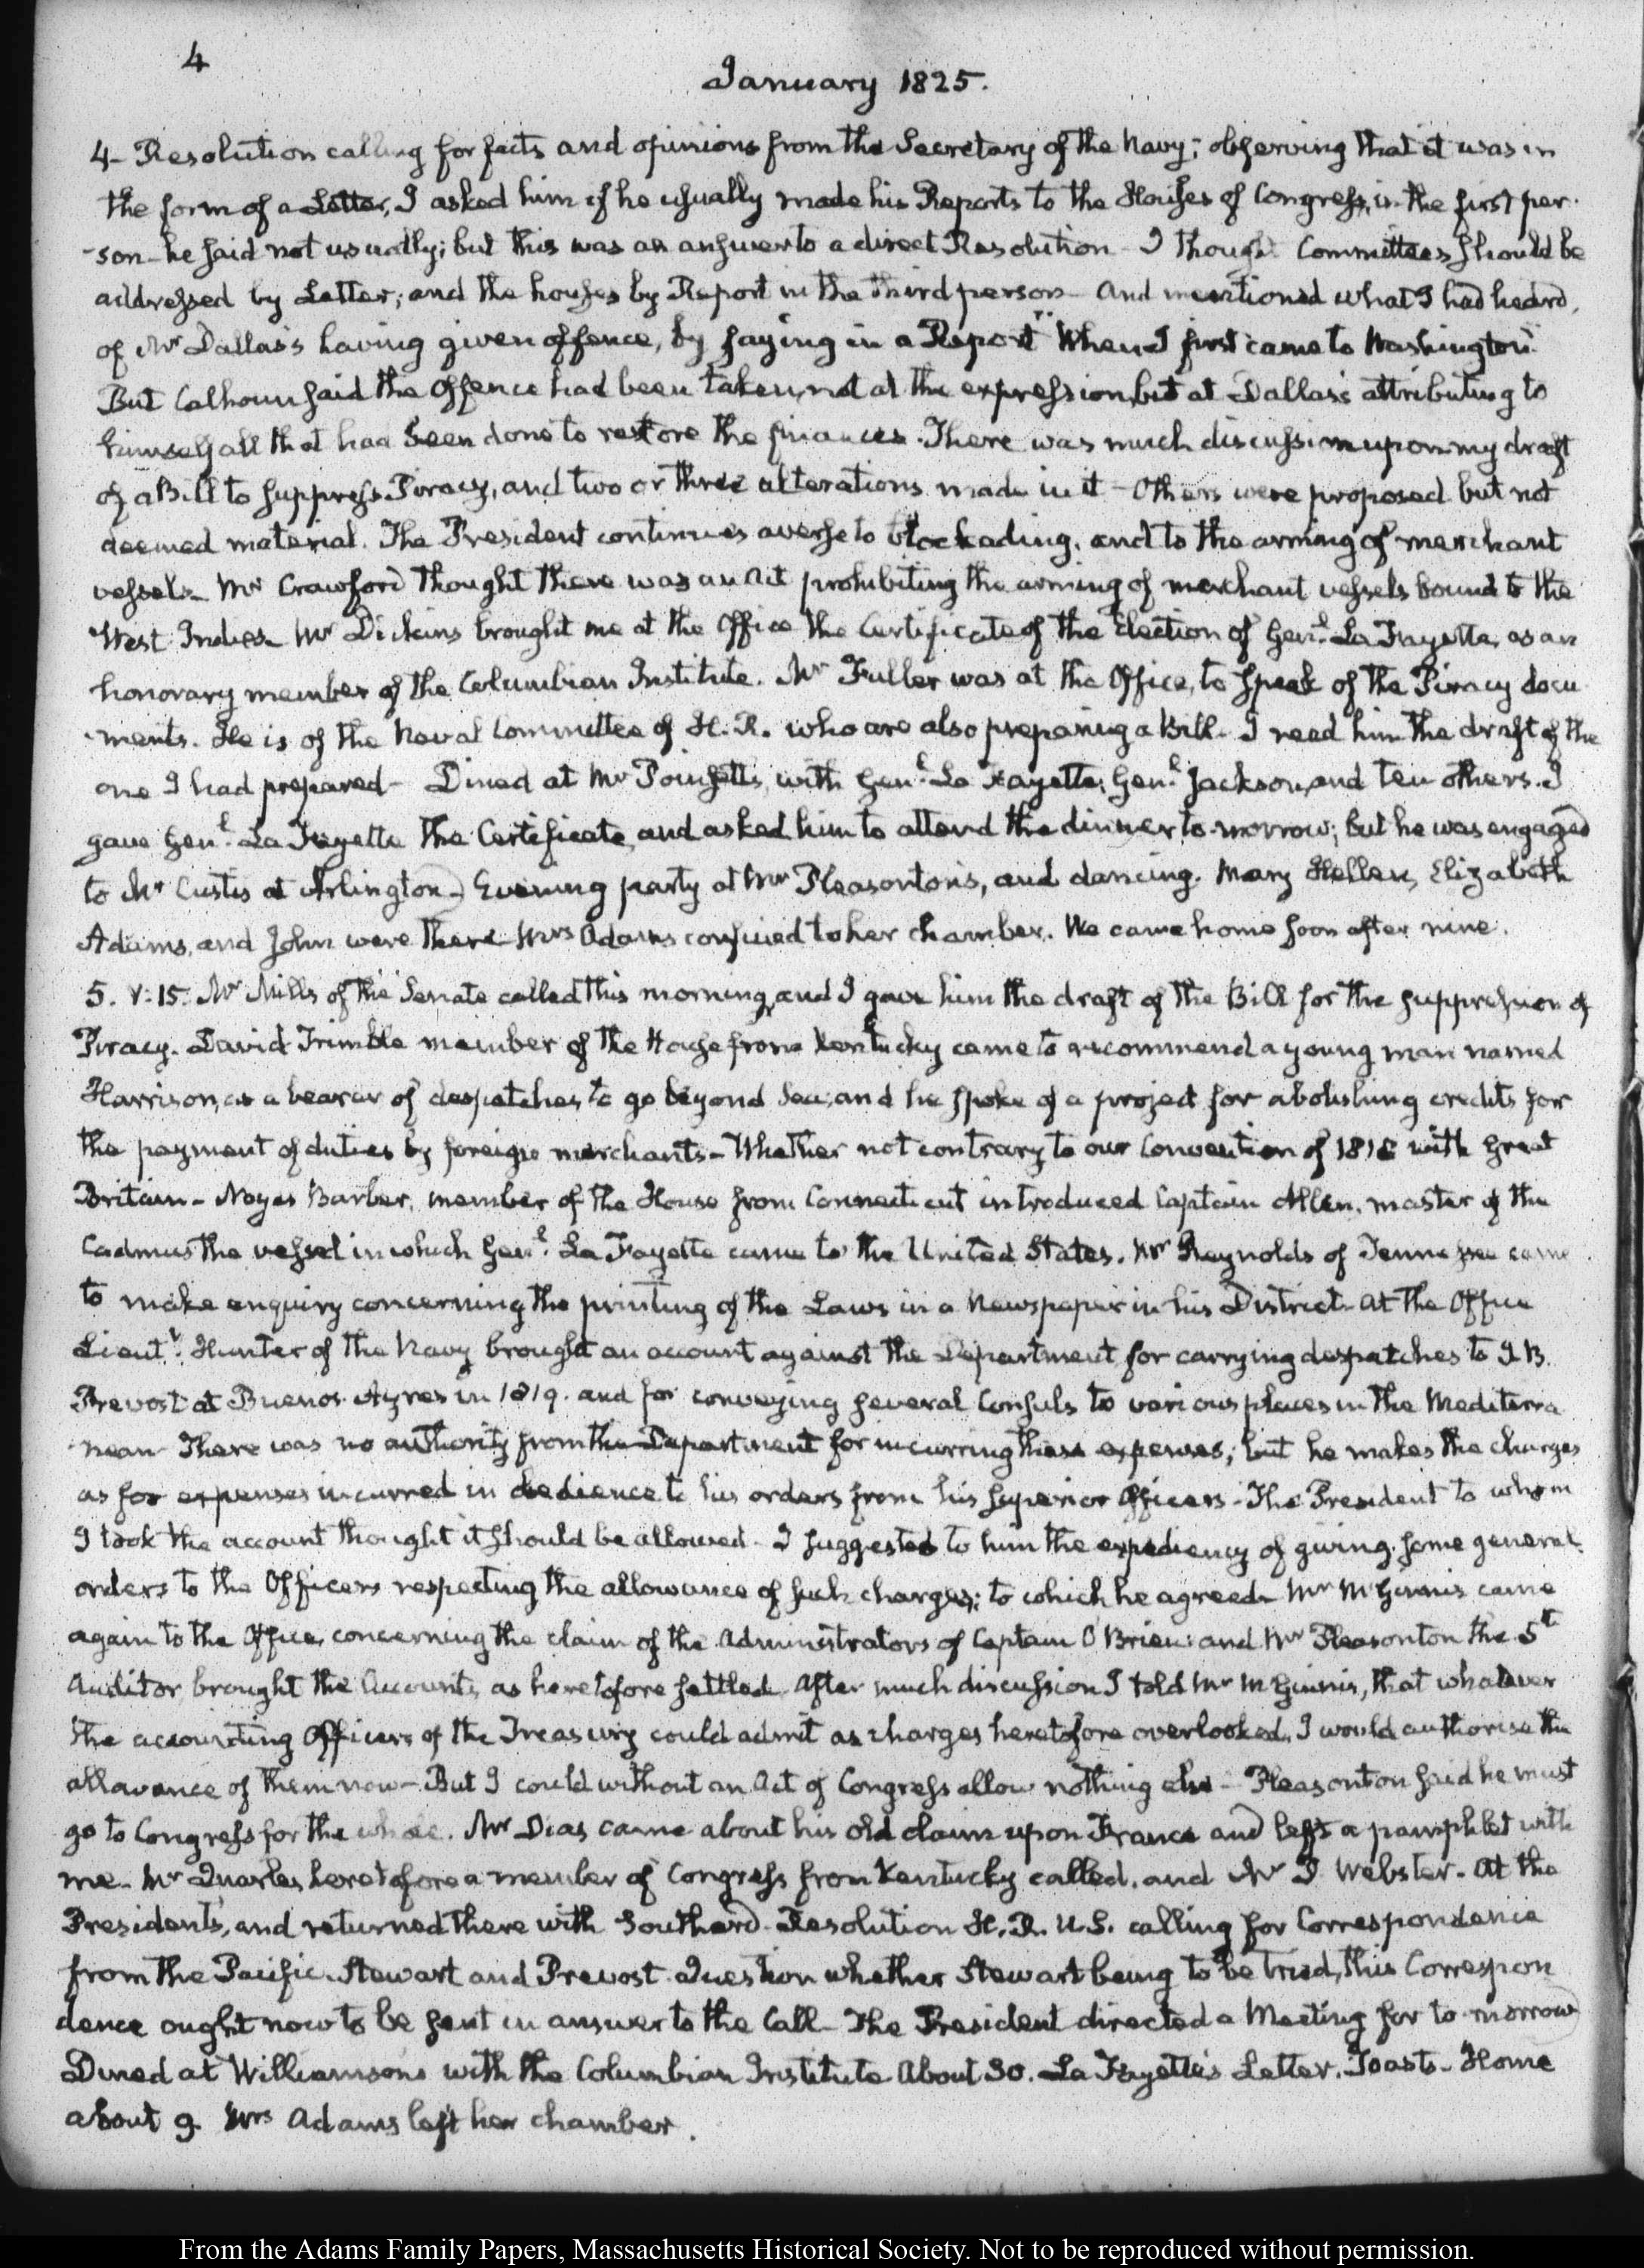 4
January 1825.
4- Resolution calling for facts and opinions from the Secretary of the Navy; observing that it was in
the form of a Letter, I asked him if he usually made his Reports to the Houses of Congress, in the first per-
-son- he said not usually; but this was an answer to a direct Resolution- I thought Committees should be
addressed by Letter; and the houses by Report in the third person- And mentioned what I had heard,
of Mr. Dallas's having given offence, by saying in a Report "When I first came to Washington"
But Calhoun said the Offence had been taken, not at the expression, but at Dallas's attributing to
himself all that had been done to restore the finances. There was much discussion upon my draft
of a Bill to suppress Piracy, and two or three alterations made in it- Others were proposed but not
deemed material. The President continues averse to blockading, and to the arming of merchant
vessels- Mr Crawford thought there was an Act prohibiting the arming of merchant vessels bound to the
West Indies- Mr Dickins brought me at the Office the Certificate of the Election of Genl. La Fayette, as an
honorary member of the Columbian Institute. Mr Fuller was at the Office, to speak of the Piracy docu
-ments. He is of the Naval Committee of H. R. who are also preparing a Bill- I read him the draft of the
one I had prepared- Dined at Mr Poinsett's, with Genl. La Fayette, Genl. Jackson, and ten others. I
gave Genl. La Fayette the Certificate, and asked him to attend the dinner to-morrow; but he was engaged
to Mr Custis at Arlington- Evening party at Mr Pleasonton's, and dancing. Mary Hellen, Elizabeth
Adams, and John were there- Mrs Adams confined to her chamber. We came home soon after nine.
5. V:15. Mr Mills of the Senate called this morning, and I gave him the draft of the Bill for the suppression of
Piracy. David Trimble member of the House from Kentucky came to recommend a young man named
Harrison, as a bearer of despatches, to go beyond Sea; and he spoke of a project for abolishing credits for
the payment of duties by foreign merchants- Whether not contrary to our Convention of 1818 with Great
Britain- Noyes Barber, member of the House from Connecticut introduced Captain Allen, master of the
Cadmus the vessel in which Genl. La Fayette came to the United States. Mr Reynolds of Tennessee came
to make enquiry concerning the printing of the Laws in a Newspaper in his District- At the Office
Lieutt. Hunter of the Navy brought an account against the Department, for carrying despatches to J. B.
Prevost at Buenos Ayres in 1819. and for conveying several Consuls to various places in the Mediterra
-nean- There was no authority from the Department for incurring these expenses; but he makes the charges
as for expenses incurred in obedience to his orders from his superior Officers- The President to whom
I took the account thought it should be allowed- I suggested to him the expediency of giving some general
orders to the Officers respecting the allowance of such charges; to which he agreed- Mr McGinnis came
again to the Office, concerning the claim of the Administrators of Captain O'Brien: and Mr Pleasonton the 5th
Auditor brought the Accounts, as heretofore settled- After much discussion I told Mr McGinnis, that whatever
the accounting Officers of the Treasury could admit as charges heretofore overlooked, I would authorise the
allowance of them now- But I could without an Act of Congress allow nothing else- Pleasonton said he must
go to Congress for the whole. Mr Dias came about his old claim upon France and left a pamphlet with
me- Mr Quarles heretofore a member of Congress from Kentucky called, and Mr D Webster- At the
Presidents, and returned there with Southard- Resolution H. R. U.S. calling for Correspondence
from the Pacific. Stewart and Prevost. Question whether Stewart being to be tried, this Correspon
dence ought now to be sent in answer to the Call- The President directed a Meeting for to-morrow
Dined at Williamsons with the Columbian Institute- About 30. La Fayette's Letter. Toasts- Home
about 9. Mrs Adams left her chamber.
From the Adams Family Papers, Massachusetts Historical Society. Not to be reproduced without permission.